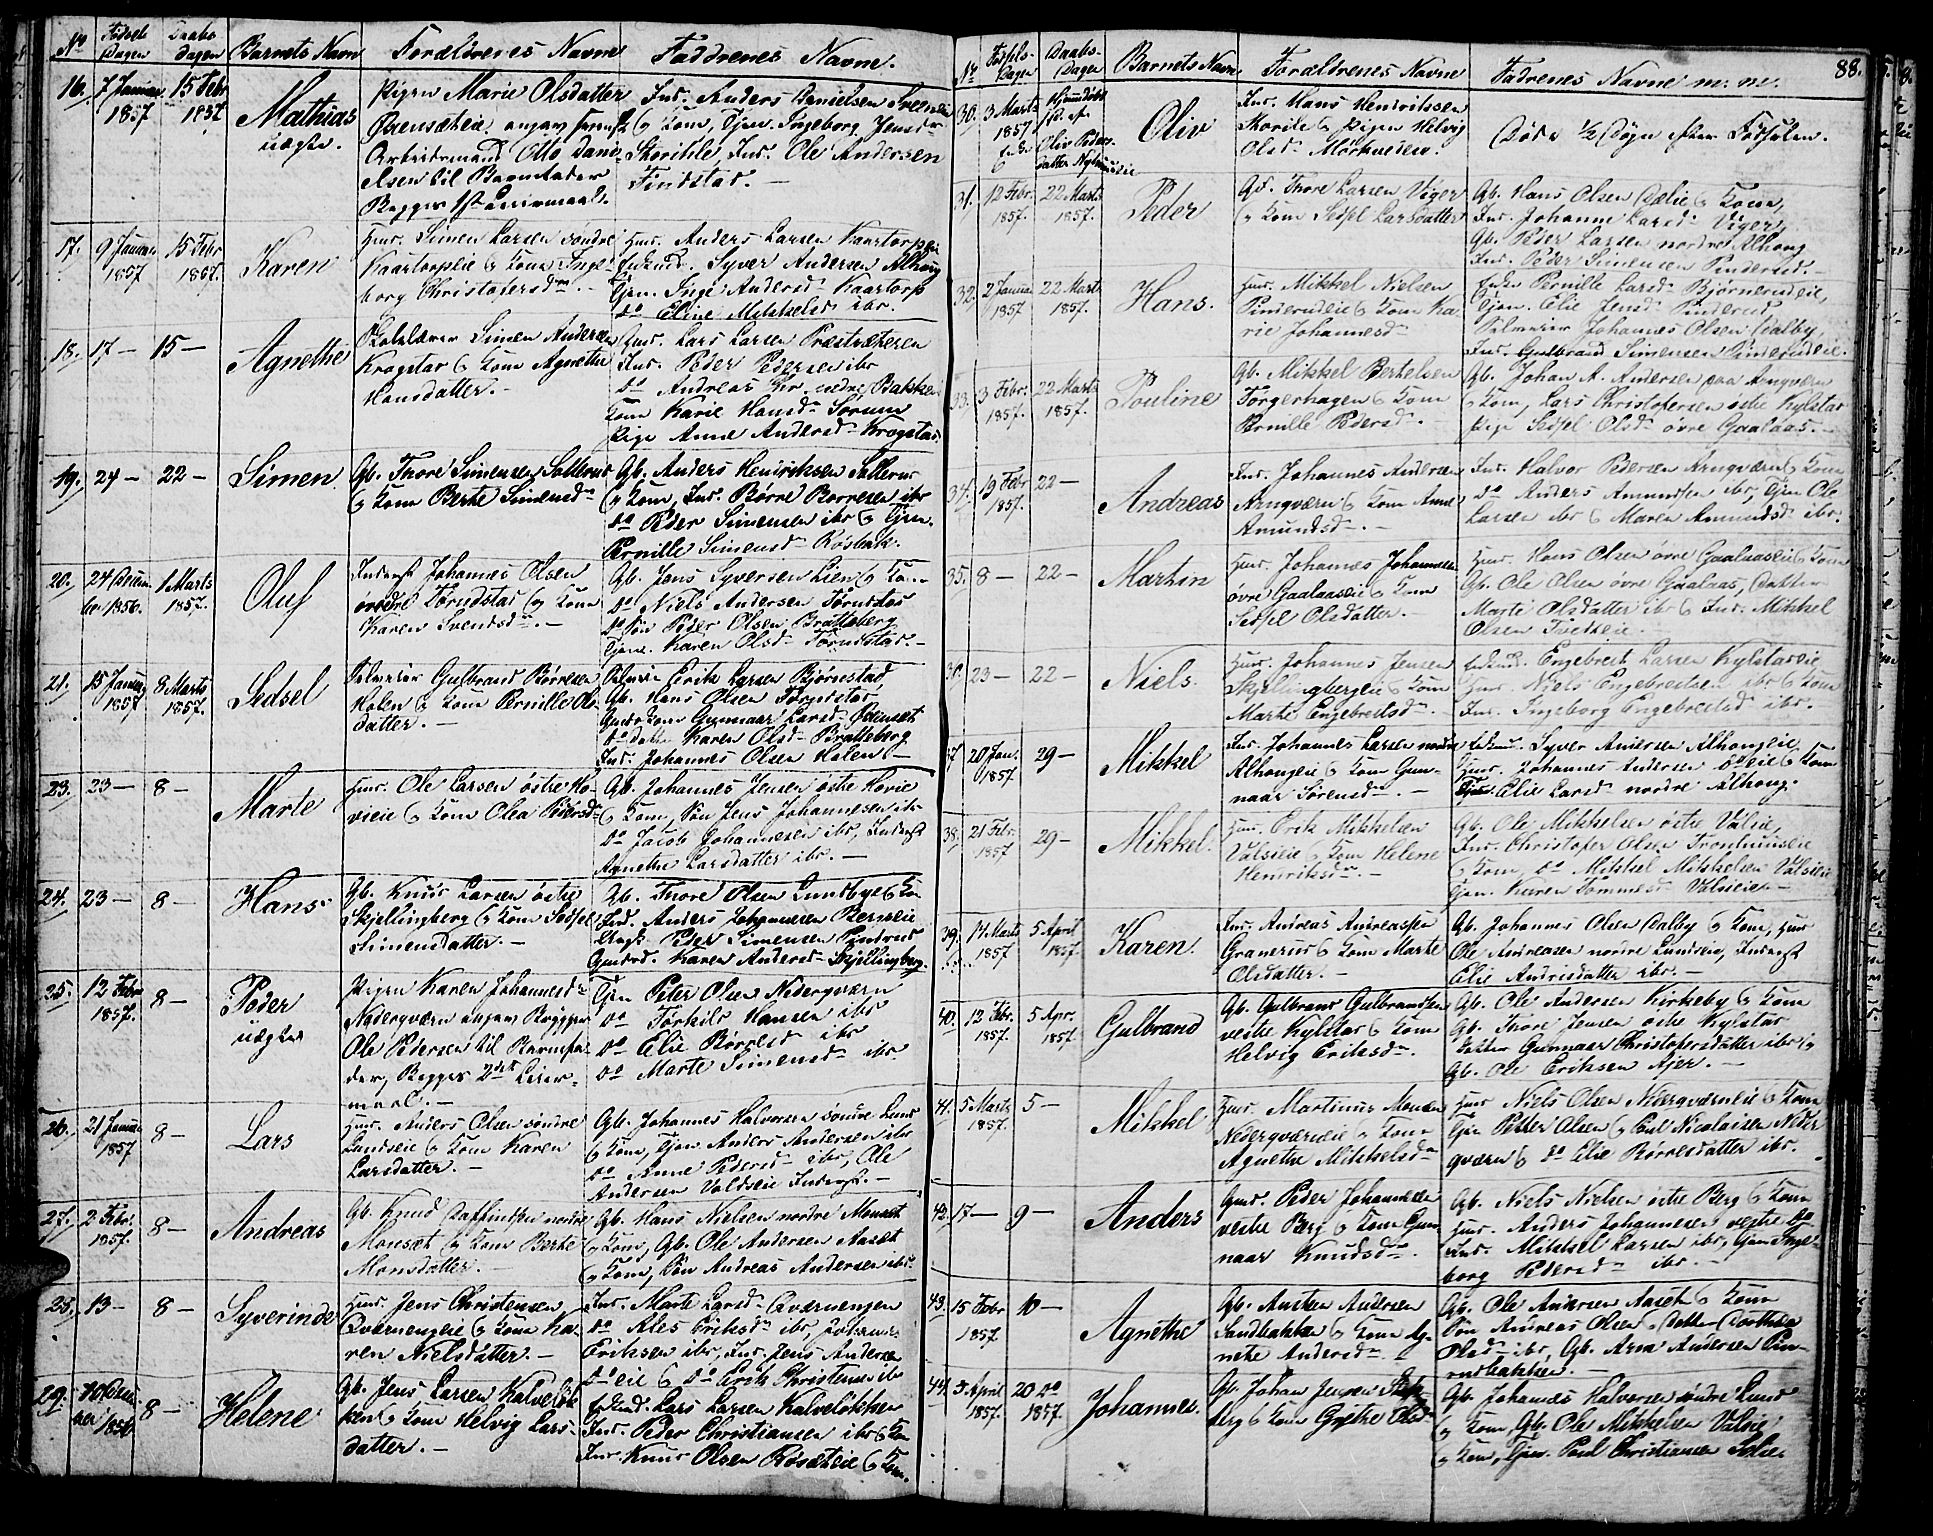 No Fødsels Dagen Daabsdagen Barnets Navn Forældrenes Navne Faddrenes Navne.
16. 7 Januar 1857 15 Febr 1857 Mathias uægte.
Pigen Marie Olsdatter
Arbeidsmand Otto Dani-
elsen til Barnefader
Begges 1ste Leiermaal.
Ind. Anders Danielsen
Kone, Tjen. Ingeborg Jensdr
Ind. Ole Andersen
Findstad.
17. 9 Januar 1857 15 Febr 1857. Karen
Huus. Simen Larsen søndre
Kaartorpeie & Kone Inge-
borg Christofersdr
Huus. Anders Larsen Kaartorpeie
Syver Andersen Alhoug
Tjen. Inge Andersd Kaartorp
do Eline Mikkelsd ibr.
18. 17 — 15 — Agnethe
Skolelærer Simen Andersen
Krogstad & Kone Agnethe
Hansdatter. —
Huus. Lars Larsen Præstsæteren
Ind. Peder Pedersen ibr
Kone Karie Hansdr Sorum
Pige Anne Andersd Krogstad
19. 24 — 22 — Simen
Gb. Thore Simensen Sollerud
& Kone Berte Simensdr
Gb. Anders Henriksen Sollerud
& Kone, Ind. Børre Borresen ibr
do Peder Simensen ibr & Tjen.
Pernille Simensdr Røsbak.
20. 24 Decem ber 1856. 1 Marts 1857. Oluf
Inderst Johannes Olsen
øvre Tørudstad & Kone
Karen Svendsdr. —
Gb. Jens Syversen Lien & Kone
do Niels Andersen Tørudstad
do Søn Peder Olsen Bratteberg
Tjen. Karen Olsdr Tørudstad. —
21. 15 Januar 1857 8 Marts 1857. Sedsel
Selveier Gulbrand Børresen
Holen & Kone Pernille Ols-
datter. —
Selveier Erik Larsen Bjørnstad
Gb. Hans Olsen Tørudstad
Karen Olsd Bratteberg
Ind. Johannes Olsen Holen —
23. 23 — 8 — Marte
Huus. Ole Larsen østre Ho-
vieie & Kone Olea Pedersdr
Gb. Johannes Jensen østre Hovie
& Kone, Søn Jens Johannesen ibr
do Jacob Johannesen ibr, Inderst
Agnethe Larsdatter ibr. —
24. 23 — 8 — Hans
Gb. Knud Larsen østre
Skjellingberg & Kone Sedsel
Simensdatter. —
Gb. Thore Olsen Lundbye & Kone
Ind. Anders Johannesen Berneie
Peder Simensen Pinderud
Karen Andersd Skjellingberg.
25. 12 Febr 1857. 8 — Peder uægte
Pigen Karen Johannesdr
Nedergværn
Ole Pedersen til Barnefa-
der, Begges 2det Leier-
maal. —
Tjen Peter Olsen Nedergværn
do Torkild Hansen ibr
do Elie Børresd ibr
do Marte Simensdr ibr
26. 21 Januar 1857 8 — Lars
Huus. Anders Olsen søndre
Lundseie & Kone Karen
Larsdatter. —
Gb. Johannes Halvorsen søndre Lund
& Kone, Tjen Anders Andersen ibr
do Anne Pedersd ibr, Ole
Andersen Valdseie Inderst. —
27. 2 Febr. 1857. 8 — Andreas
Gb. Knud Daffindsen nordre
Monsæt & Kone Berte
Monsdatter. —
Gb. Hans Nielsen nordre Monset
& Kone, Gb. Ole Andersen Aaset
& Kone, Søn Andreas Andersen ibr.
28. 13 — 8 — Syverinde
Huus. Jens Christensen
Qvernengeie & Kone Ka-
ren Nielsdatter. —
Ind. Marte Larsd Qværnengen
do Ales Eriksdr ibr, Johan-
Eriksen ibr, Ind. Jens Andersen
do eie & do Erik Christensen ibr
29. 30 Decem ber 1856 8 — Helene
Gb. Jens Larsen Kalveløk-
ken & Kone Helvig Lars-
datter. —
Lars Larsen Kalveløkken
Ind. Peder Christiansen ibr & Kone
Ind. Knud Olsen Røsæteie & Kone.
No Fødsels-Dagen Daabs-Dagen Barnets Navn Forældrenes Navne Fadrenes Navne m. m. 88.
30. 3 Marts 1857 Hjemdøbt Oliv Peders-datter Oliv
Ind. Hans Henrikssen
Skorile & Pigen Helvig
Olsdr Mørkveden.
Døde 1/2 Døgn efter Fødselen.
31. 12 Febr. 1857. 22 Marts 1857. Peder
Gb. Thore Larsen Viger
& Kone Sedsel Larsdatter
Gb. Hans Olsen Dælie & Kone,
Ind. Johanne Larsdr Viger,
Gb. Peder Larsen nordre Alhoug
Ind. Peder Simensen Pinderud. —
32. 2 Januar 1857 22 Marts 1857. Hans.
Huus. Mikkel Nielsen
Pinderudeie & Kone Ka-
rie Johannesd
Enke Pernille Larsdr Bjørnerudeie,
Tjen. Elie Jensdr Pinderud,
Selveier Johannes Olsen Dalby,
Ind. Gulbrand Simensen Pinderudeie.
33. 3 Febr. 1857. 22 Marts 1857. Pouline
Gb. Mikkel Bertelsen
Torgerhagen & Kone
Pernille Pedersd. —
Gb. Johan A. Andersen paa Arnqværn
& Kone, Lars Christofersen østre Kylstad
Pige Sedsel Olsd øvre Gaalaas. —
34. 19 Febr 1857. 22 — Andreas
Ind. Johannes Andersen
Arnqværn & Kone Anne
Amundsd. —
Ind. Halvor Pedersen Arnqværn & Kone
do Anders Amundsen ibr, Tjen Ole
Larsen ibr & Maren Amundsd ibr.
35. 8 — 22 — Martin
Huus. Johannes Johannesen
øvre Gaalaaseie & Kone
Sedsel Olsdatter. —
Huus. Hans Olsen øvre Gaalaaseie & Kone
Gb. Ole Olsen øvre Gaalaas, Datter
Marte Olsdatter ibr & Ind. Mikkel
Olsen Tvedteie. —
36. 23 — 22 — Niels.
Huus. Johannes Jensen
Skjellingbergeie & Kone
Marte Engebretsdr. —
Engebret Larsen Kylstadeie
Huus. Niels Engebretsen ibr & Kone
Ind. Ingeborg Engebretsd ibr.
37 20 Jan. 1857. 29 — Mikkel
Ind. Johannes Larsen nordre
Alhougeie & Kone Gun-
naar Sørensdr. —
Syver Andersen Alhougeie
Huus. Johannes Andersen do eie & Kone
Elie Larsd nordre Alhoug.
38. 21 Febr. 1857 29 — Mikkel.
Huus. Erik Mikkelsen
Valseie & Kone Helene
Henriksdr. —
Gb. Ole Mikkelsen østre Valsie,
Ind. Christofer Olsen
& Kone, do Mikkel Mikkelsen Valseie
Tjen. Karen Valseie —
39. 14 Marts 1857 5 April 1857. Karen.
Ind. Andreas Andreassen
Granerud & Kone Marte
Olsdatter. —
Gb. Johannes Olsen Dalby & Kone, Huus
Ole Andreasen nordre Lundseie, Inderst
Elie Andrisdatter ibr. —
40. 12 Febr. 1857. 5 Apr. 1857 Gulbrand
Gb. Gulbrand Gulbrandsen
vestre Kylstad & Kone
Helvig Eriksdr.
Gb. Ole Andersen Kirkeby & Kone
Gb. Thore Jensen østre Kylstad
Datter Gunnaar Christofersdatter ibr &
Gb. Ole Eriksen Ajer. —
41. 5 Marts 1857. 5 — Mikkel
Huus. Martinus Monsen
Nedergværneie & Kone
Agnethe Mikkelsdr
Huus Niels Olsen Nedergværneie & Kone
Tjen Petter Olsen & Paul Nicolaisen Neder
gværn & do Elie Børresdatter ibr.
42. 17 — 9 — Anders
Huus. Peder Johannesen
vestre Berg & Kone Gun-
naar Knudsdr.
Gb. Niels Nielsen østre Berg & Kone
Huus. Anders Johannesen vestre do
Ind. Mikkel Larsen ibr, Tjen Inge-
borg Pedersdr ibr. —
43. 15 Febr 1857. 10 — Agnethe
Gb. Austen Andersen
Sandbakken & Kone Ag-
nete Andersd. —
Gb. Ole Andersen Aaset & Kone
Søn Andreas Olsen & Datter Dorthea
Olsd ibr, Gb. Arne Andersen Pin-
rudbakken. —
44. 3 April 1857. 20 do 1857 Johannes.
Gb. Johan Jensen
berg & Kone Grethe Olsdr
Gb. Johannes Halvorsen søndre Lund
& Kone, Gb. Ole Mikkelsen Valsie
& Kone, Tjen. Paul Christiansen